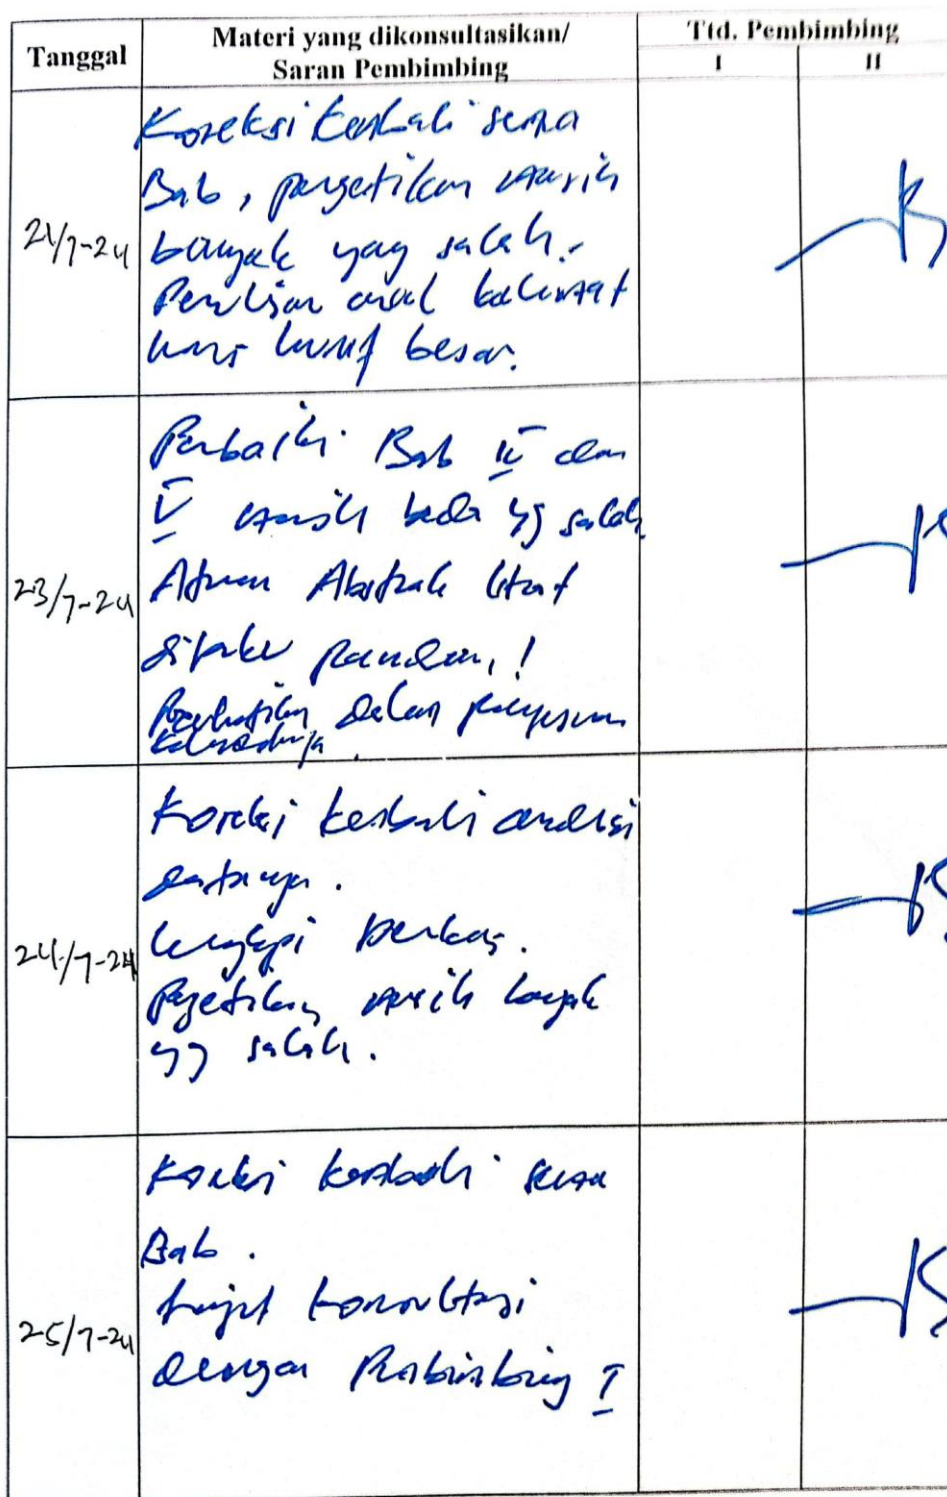 Tanggal
Materi yang dikonsultasikan/
Saran Pembimbing
Ttd. Pembimbing
I
II
21/7-24
Koreksi kembali semua
Bab, pengetikan masih
banyak yang salah.
Penulisan awal kalimat
huruf besar.
23/7-24
Perbaiki Bab IV dan
V masih yg salah.
Aturan Abstrak lihat
panduan!
Perhatikan dalam
24/7-24
Koreksi kembali analisi
datanya.
Lengkapi berkas.
Pengetikan masih banyak
yg salah.
25/7-24
Koreksi kembali semua
Bab.
Lanjut konsultasi
dengan Pembimbing I